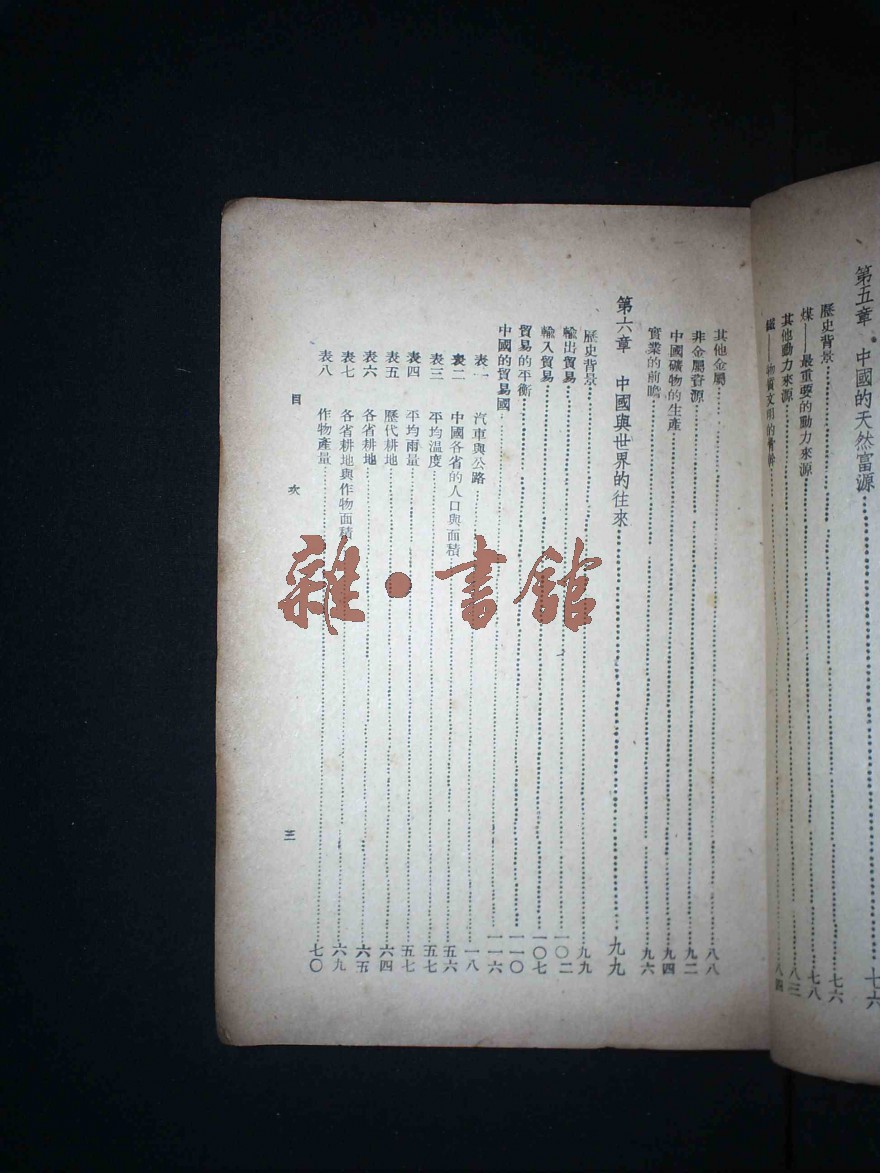 第五章 中國的天然富源……七六
歷史背景……七六
煤——最重要的動力來源……七八
其他動力來源……八三
鐵——物質文明的骨幹……八四
其他金屬……八八
非金屬資源……九二
中國礦物的生產……九四
實業的前瞻……九六
第六章 中國與世界的往來……九九
歷史背景……九九
輸出貿易……一〇二
輸入貿易……一〇七
貿易的平衡……一一〇
中國的貿易國……一一六
表一 汽車與公路……一八
表二 中國各省的人口與面積……五六
表三 平均溫度……五七
表四 平均雨量……五七
表五 歷代耕地……六四
表六 各省耕地……六五
表七 各省耕地與作物面積……六九
表八 作物產量……七〇
目次
三
雜·書館